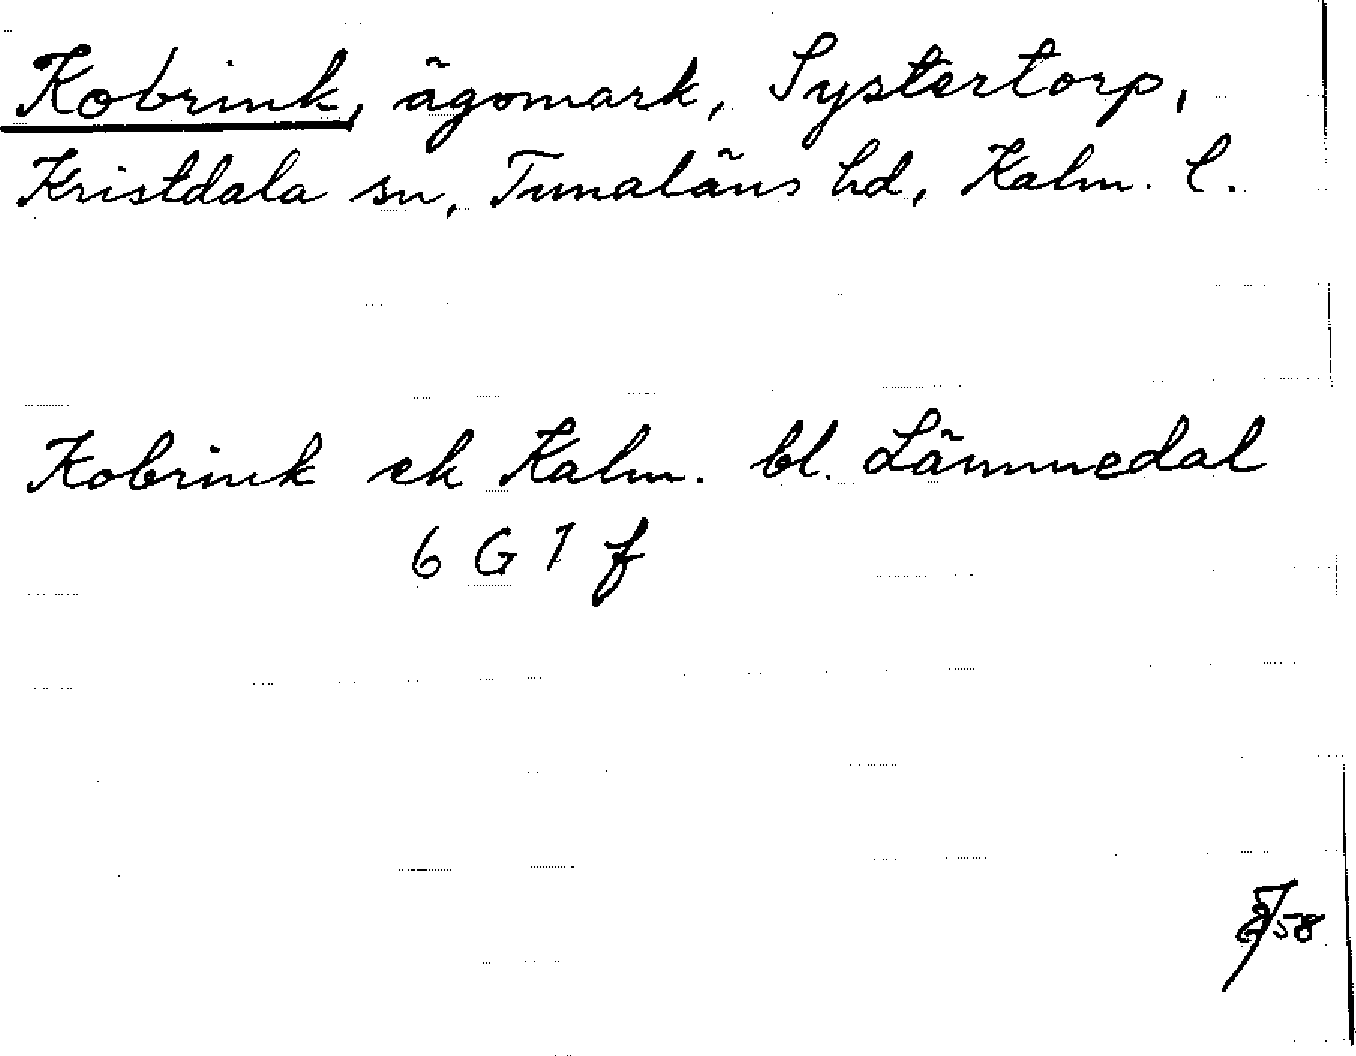 Kobrink, ägomark, Systertorp,
Kristdala sn, Tunaläns hd, Kalm. l.
Kobrink ek Kalm. bl. Lämmedal
6 G 7 f
58